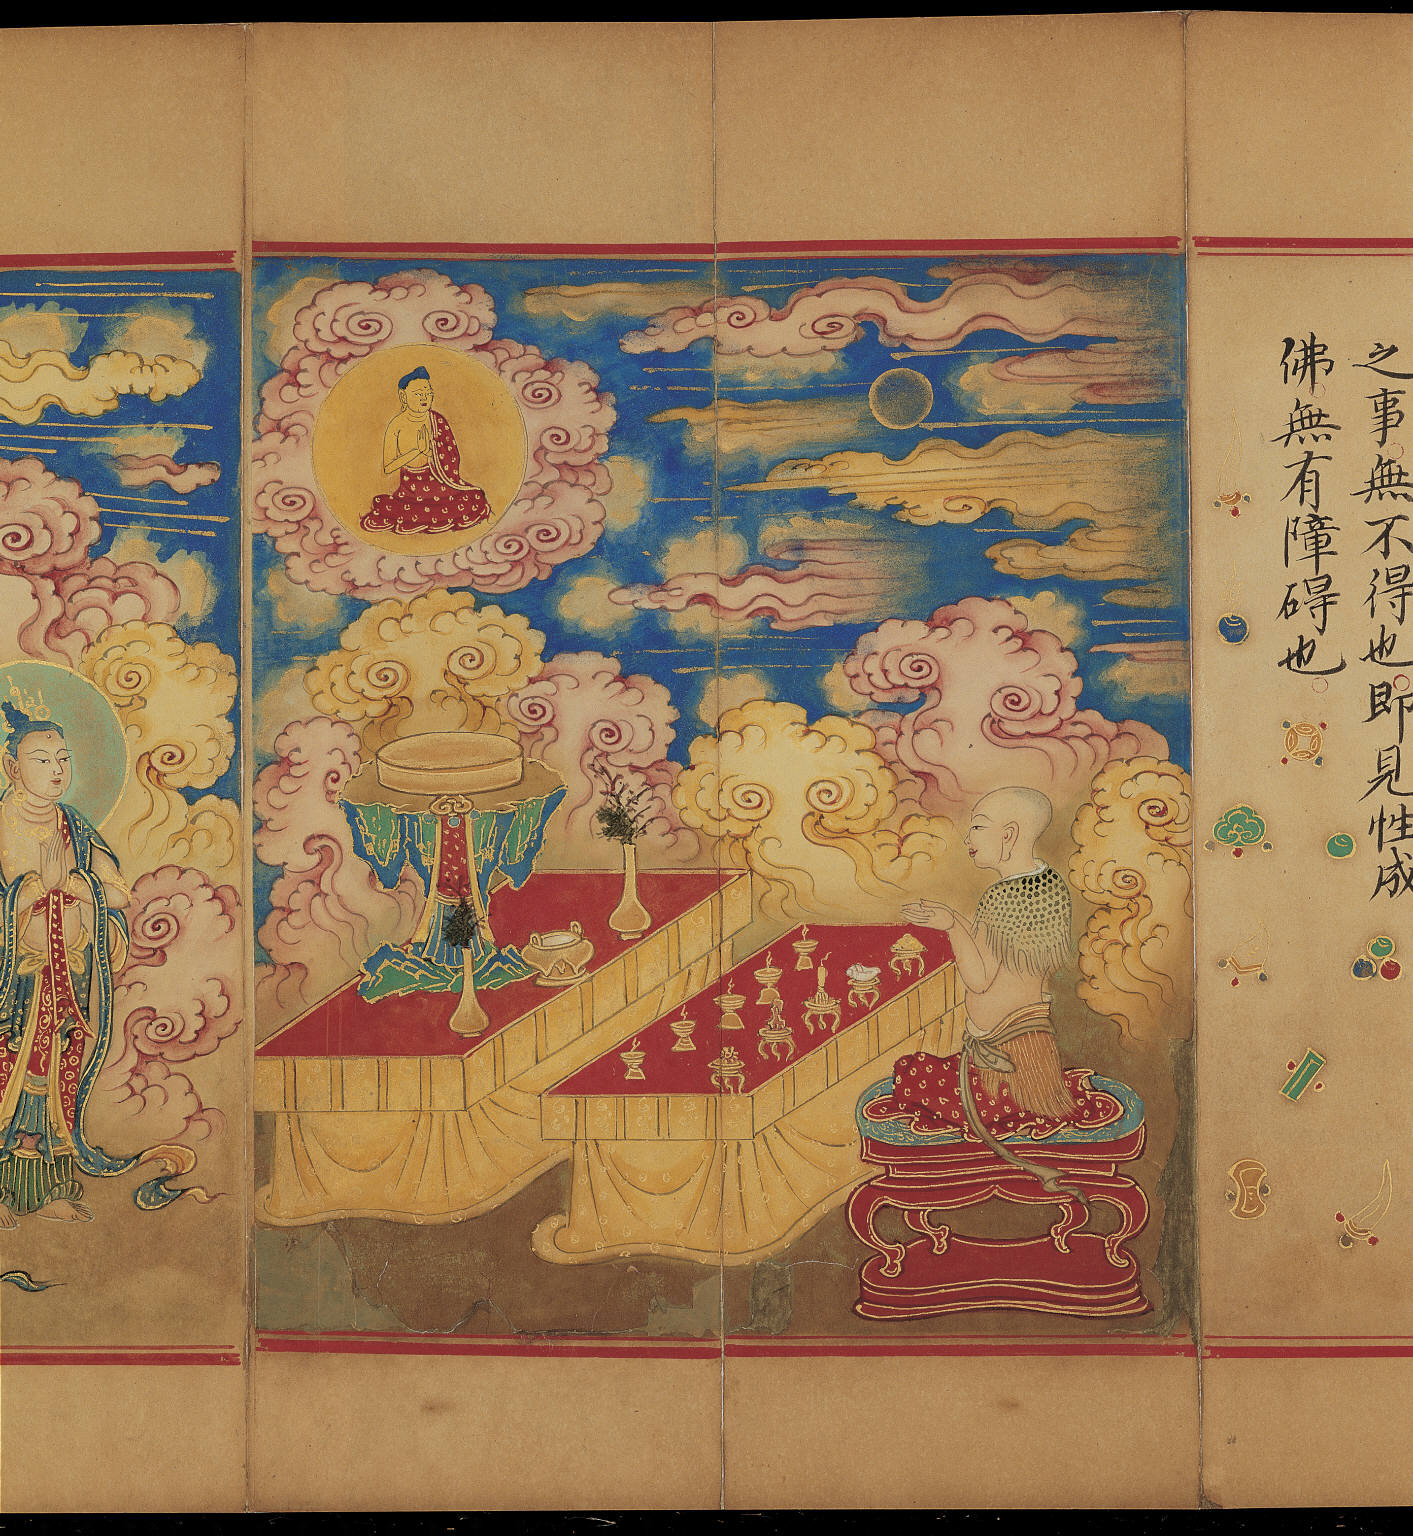 之事無不得也即見性成
佛無有障碍也